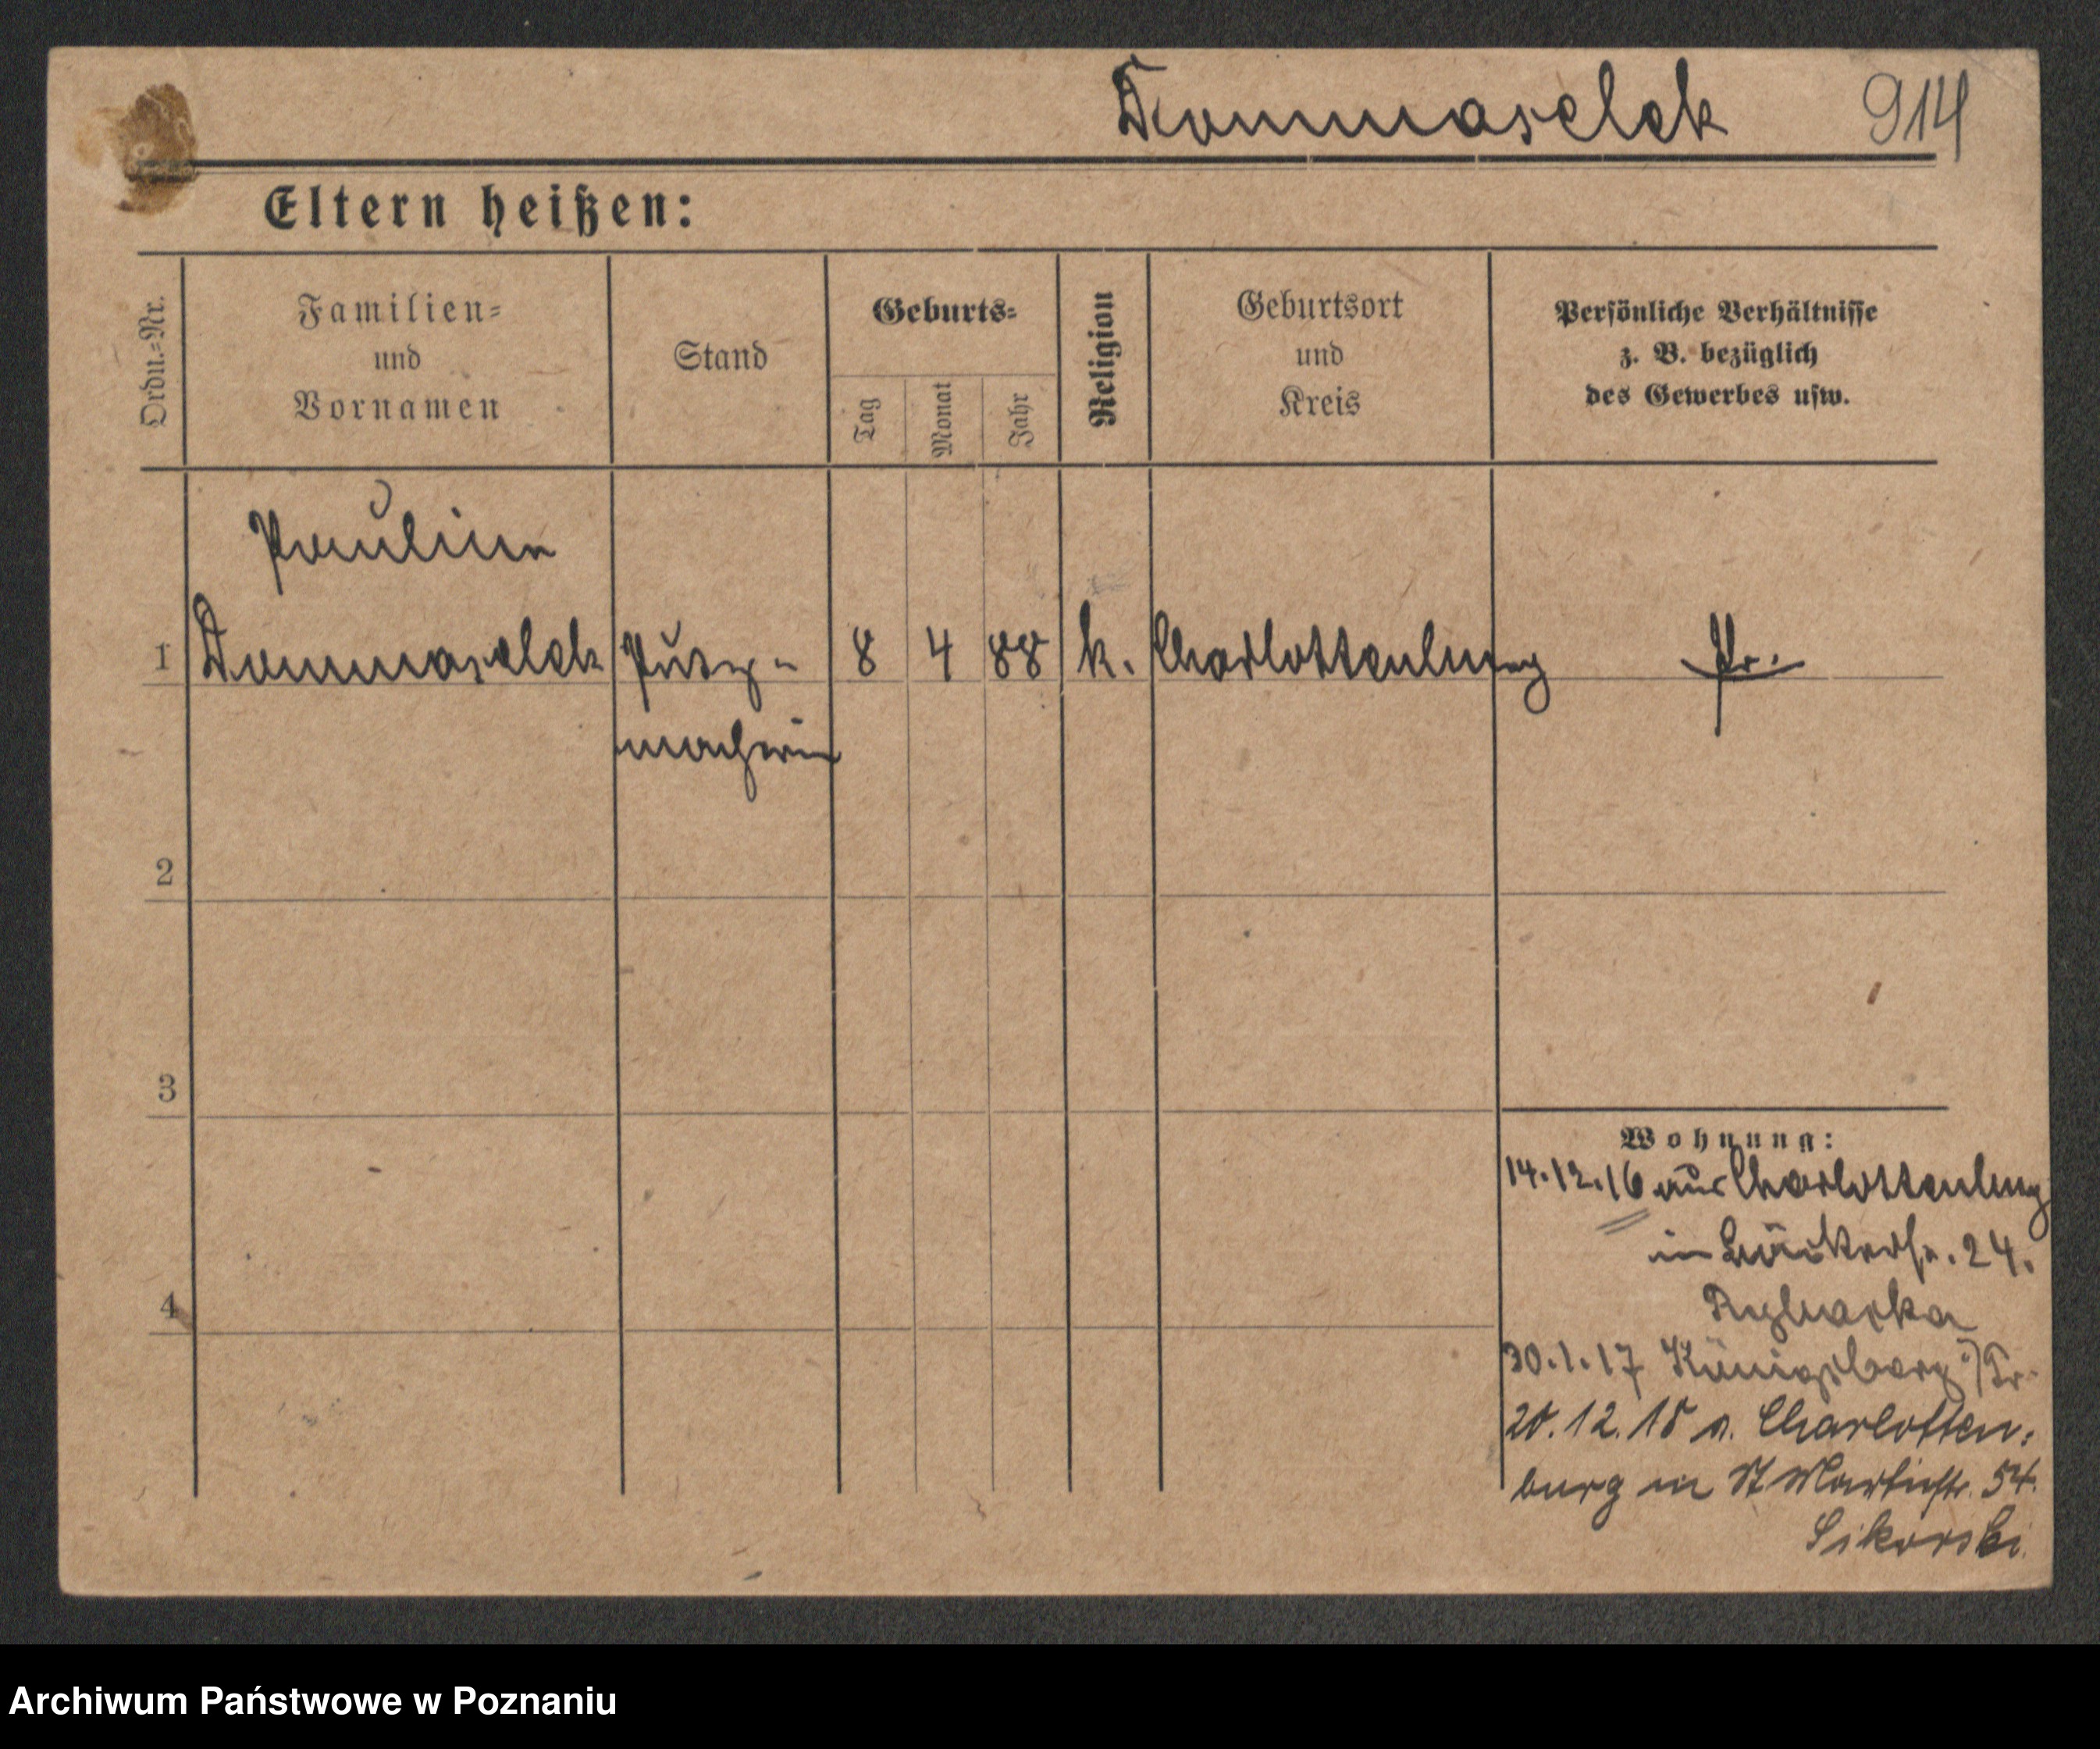 Dommaschek 914
Eltern heißen:
Ordn.=Nr.
Familien=
und
Vornamen
Stand
Geburts=
Tag
Monat
Jahr
Religion
Geburtsort
und
Kreis
Persönliche Verhältnisse
z. B. bezüglich
des Gewerbes usw.
Pauline
1 Putz- 8 4 88 k. Charlottenburg Pr.
macherin
2
3
4
Wohnung:
14.12.16 aus Charlottenburg
in Bäckerstr. 24.
30.1.17 Königsberg i/Pr.
20.12.18 a. Charlotten:
burg in St Martinstr. 54.
Sikorski
Archiwum Państwowe w Poznaniu